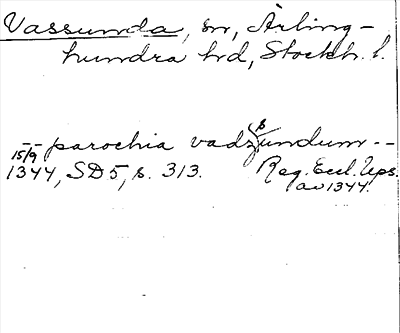 Vassunda, sn, Ärling-
hundra hd, Stockh. l.
-- parochia vadzsundum --
15/9
1344, SD5, s. 313. Reg. Eccl. Ups.
av 1344.